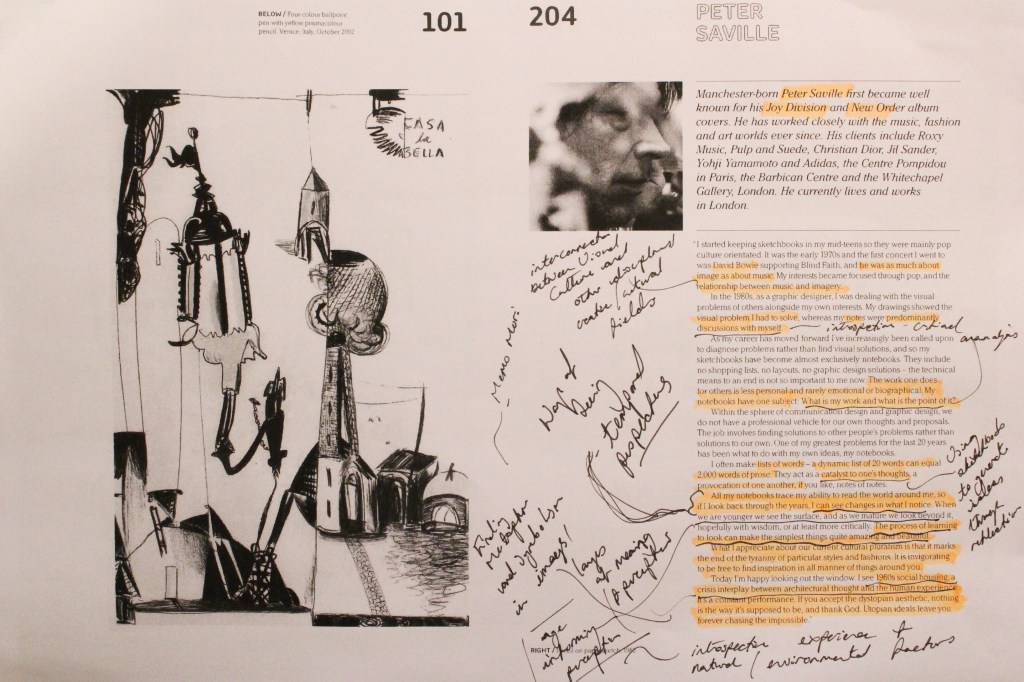 BELOW / Four-colour ballpoint
pen with yellow prismacolour
pencil. Venice, Italy, October 2002
101
CASA
la
BELLA
204
PETER
SAVILLE
Manchester-born Peter Saville first became well
known for his Joy Division and New Order album
covers. He has worked closely with the music, fashion
and art worlds ever since. His clients include Roxy
Music, Pulp and Suede, Christian Dior, Jil Sander,
Yohji Yamamoto and Adidas, the Centre Pompidou
in Paris, the Barbican Centre and the Whitechapel
Gallery, London. He currently lives and works
in London.
"I started keeping sketchbooks in my mid-teens so they were mainly pop
culture orientated. It was the early 1970s and the first concert I went to
was David Bowie supporting Blind Faith, and he was as much about
image as about music. My interests became focused through pop, and the
relationship between music and imagery.
In the 1980s, as a graphic designer, I was dealing with the visual
problems of others alongside my own interests. My drawings showed the
visual problem I had to solve, whereas my notes were predominantly
discussions with myself.
As my career has moved forward I've increasingly been called upon
to diagnose problems rather than find visual solutions, and so my
sketchbooks have become almost exclusively notebooks. They include
no shopping lists, no layouts, no graphic design solutions – the technical
means to an end is not so important to me now. The work one does
for others is less personal and rarely emotional or biographical. My
notebooks have one subject: 'What is my work and what is the point of it?'
Within the sphere of communication design and graphic design, we
do not have a professional vehicle for our own thoughts and proposals.
The job involves finding solutions to other people's problems rather than
solutions to our own. One of my greatest problems for the last 20 years
has been what to do with my own ideas, my notebooks.
I often make lists of words – a dynamic list of 20 words can equal
2,000 words of prose. They act as a catalyst to one's thoughts, a
provocation of one another, if you like, notes of notes.
All my notebooks trace my ability to read the world around me, so
if I look back through the years, I can see changes in what I notice. When
we are younger we see the surface, and as we mature we look beyond it,
hopefully with wisdom, or at least more critically. The process of learning
to look can make the simplest things quite amazing and beautiful.
What I appreciate about our current cultural pluralism is that it marks
the end of the tyranny of particular styles and fashions. It is invigorating
to be free to find inspiration in all manner of things around you.
Today I'm happy looking out the window. I see 1960s social housing, a
crisis interplay between architectural thought and the human experience.
It's a constant performance. If you accept the dystopian aesthetic, nothing
is the way it's supposed to be, and thank God. Utopian ideals leave you
forever chasing the impossible."
interconnection
between visual
culture and
other
cultural
fields
introspection - critical
analysis
Memo Mori
Way of
Seeing
temporal
perspectives
Using
sketchbooks
to
ideas
through
reflection
Finding
metaphor
and symbolism
in images!
layers
of meaning
& perception
age
informing
perception
RIGHT /
introspection experience +
natural / environmental factors